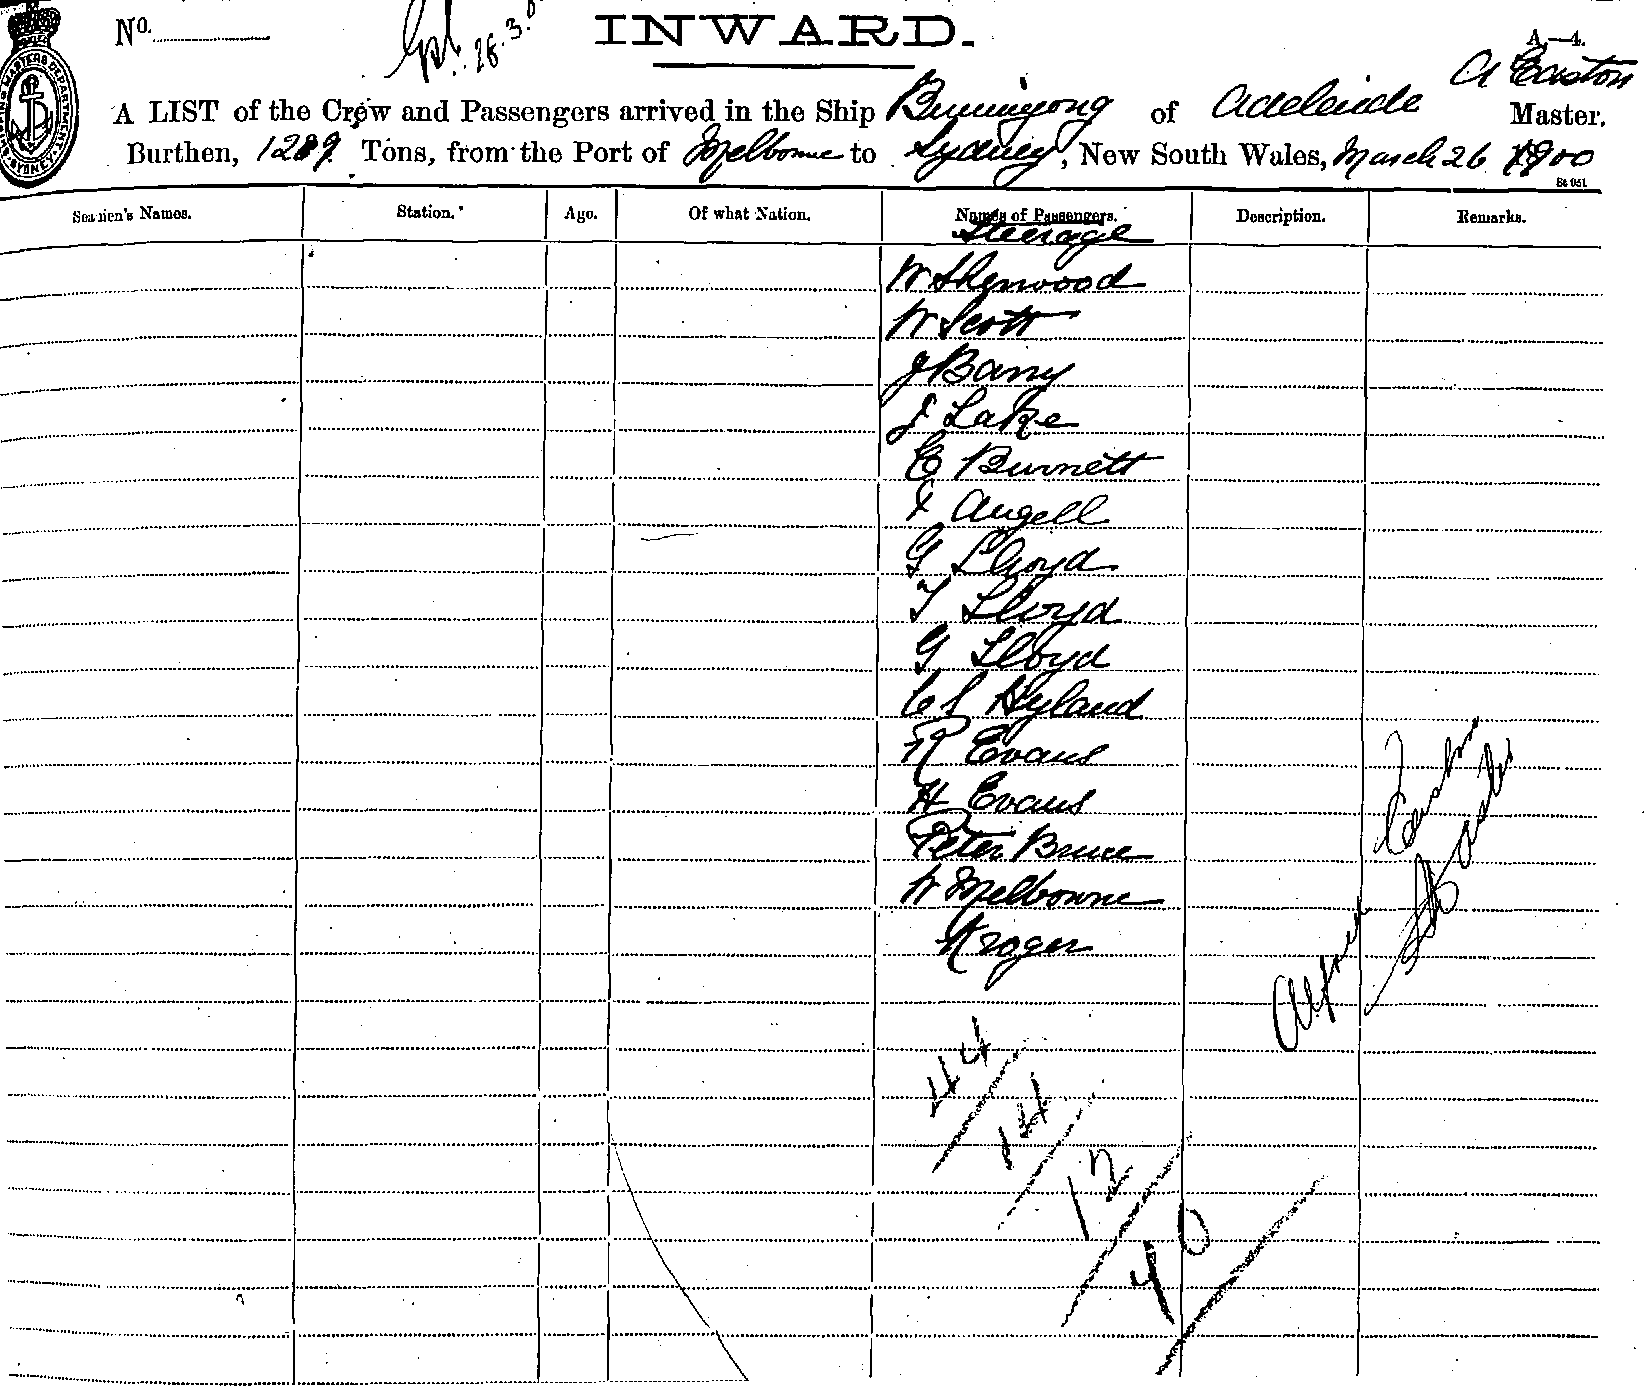 No.
26.3.0
INWARD.
A.—4.
A Easton
A LIST of the Crew and Passengers arrived in the Ship Buninyong of Adelaide Master,
Burthen, 1289 Tons, from the Port of Melbourne to Sydney, New South Wales, March 26 1900
St 951
Seamen's Names. Station. Age. Of what Nation. Names of Passengers. Description. Remarks.
Steerage
W Sherwood
W Scott
J Barry
J Lake
E Burnett
Angell
G Lloyd
T Lloyd
G Lloyd
Hyland
R Evans
H Evans
Peter Bruce
W Melbourne
Kroger
Alfred Easton
Master
44
144
12
40